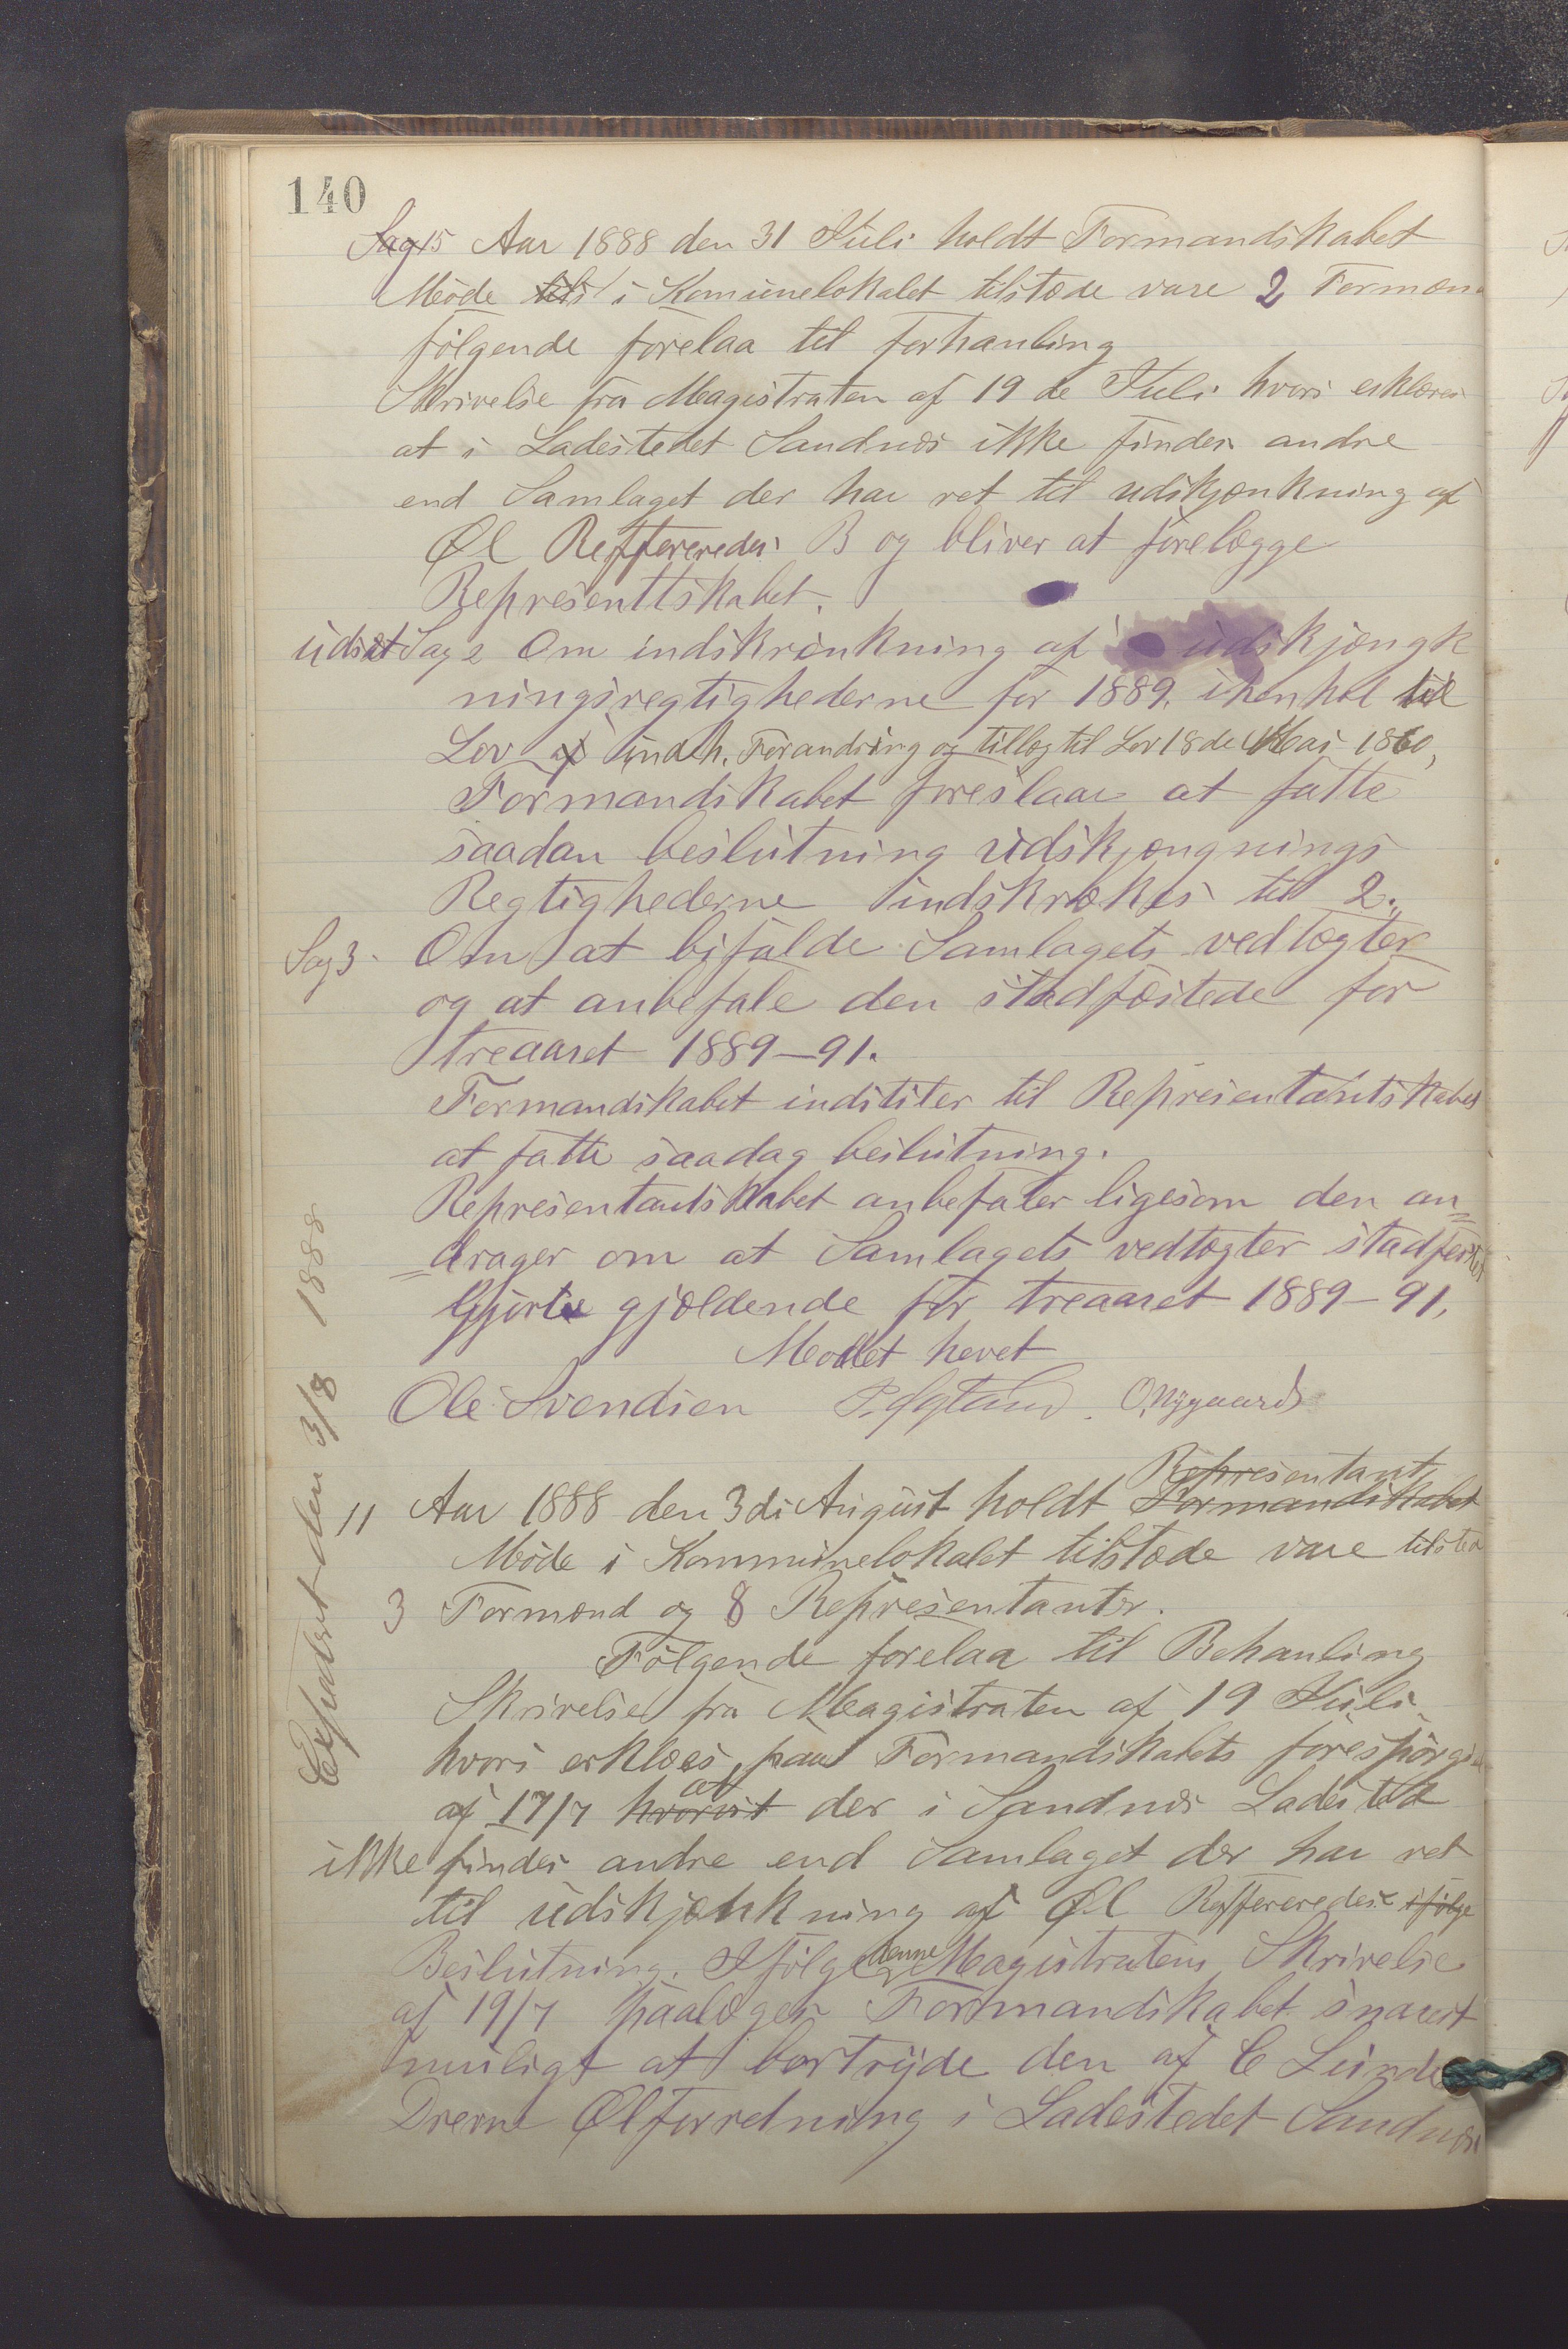 140
Sag 15 Aar 1888 den 31 Juli holdt Formandskabet
Møde tils i Komunelokalet tilstede vare 2 Formæn
følgende forelaa til forhanling
Skrivelse fra Magistraten af 19 de Juli hvori erklæres
at i Ladestedet Sandnæs ikke findes andre
end Samlaget der har ret til udskjænkning af
Øl Reffereredes B og bliver at forelægge
Representtskabet.
udsat Sag 2 Om indskrænkning af udskjængk
ningsregtighederne for 1889. ihenhol til
Lov af indeh. Forandring og tillæg til Lov 18 de Mai 1860,
Formandskabet foreslaar at fatte
saadan beslutning udskjængnings
Regtighederne indskrækes til 2.
Sag 3. Om at bifalde Samlagets vedtægter
og at anbefale den stadfæstede for
treaaret 1889-91.
Formandskabet indstiter til Representantskabet
at fatte saadag beslutning.
Representantskabet anbefaler ligesom den an=
=drager om at Samlagets vedtægter stadfestes
Gjorte gjældende for treaaret 1889-91.
Mødet hevet
Ole Svendsen O. Nygaard
Expederet den 3/8 1888
11 Aar 1888 den 3di August holdt Formandskabet Representant
Møde i Kommunelokalet tilstæde vare tilsted
3 Formænd og 8 Representanter.
Følgende forelaa til Behanling
Skrivelse fra Magistraten af 19 Juli
hvori erklæes, paa Formandskabets forespørgs
af 17/7 hvorvit at der i Sandnæs Ladested
ikke findes andre end Samlaget der har ret
til udskjænkning af Øl Reffereredes ifølge
Beslutning. Ifølge denne Magistratens Skrivelse
af 19/7 paalæges Formandskabet snarest
muligt at bortryde den af C Lunde
Drevne Ølforretning i Ladestedet Sandnæs